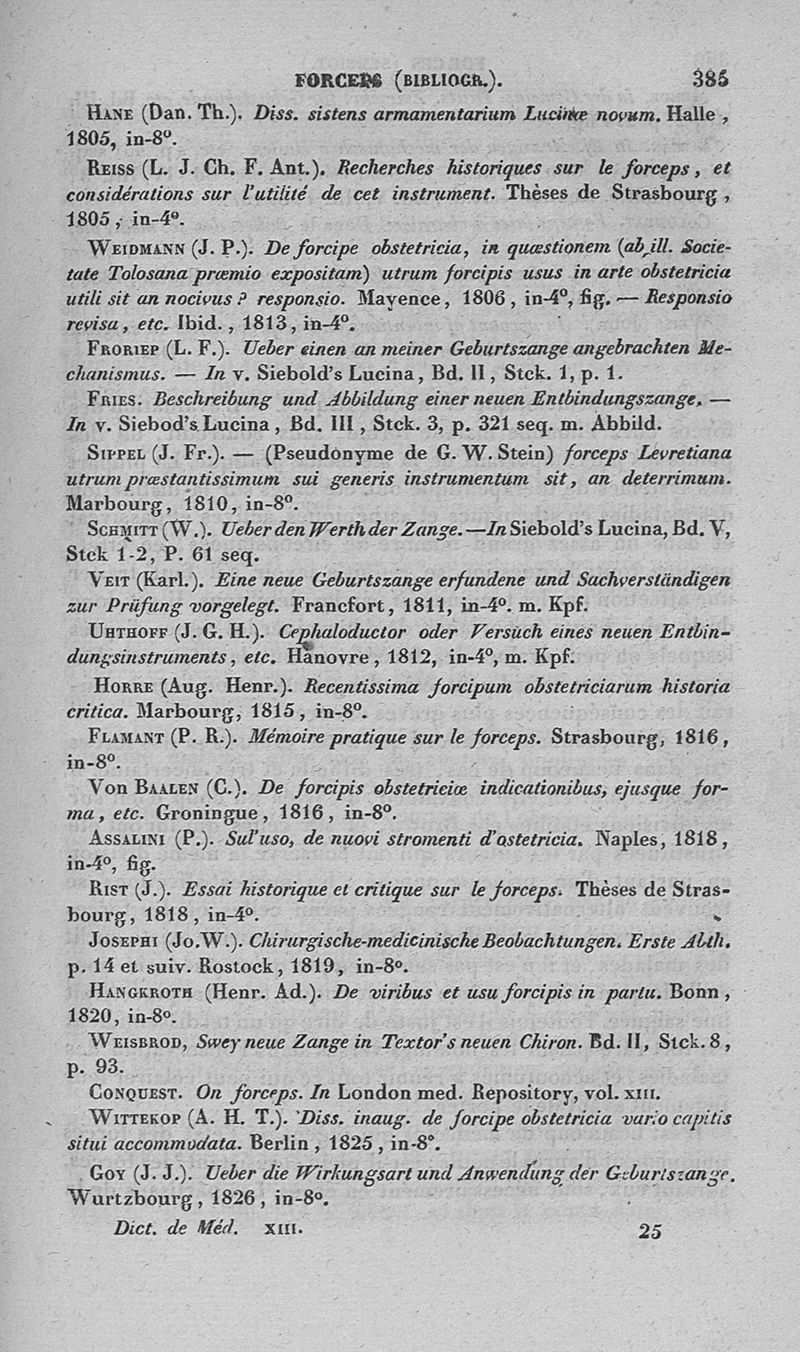 FORCEPS (BIBLIOGR.). 385
HANE (Dan. Th.). Diss. sistens armamentarium Lucinæ novum. Halle ,
1805, in-8º.
REISS (L. J. Ch. F. Ant.). Recherches historiques sur le forceps, et
considérations sur l'utilité de cet instrument. Thèses de Strasbourg ,
1805, in-4º.
WEIDMANN (J. P.). De forcipe obstetricia, in quæstionem (ab ill. Socie-
tate Tolosana præmio expositam) utrum forcipis usus in arte obstetricia
utili sit an nocivus ? responsio. Mayence, 1806, in-4º, fig. — Responsio
revisa, etc. Ibid., 1813, in-4º.
FRORIEP (L. F.). Ueber einen an meiner Geburtszange angebrachten Me-
chanismus. — In v. Siebold's Lucina, Bd. II, Stck. 1, p. 1.
FRIES. Beschreibung und Abbildung einer neuen Entbindungszange. —
In v. Siebod's Lucina, Bd. III, Stck. 3, p. 321 seq. m. Abbild.
SIPPEL (J. Fr.). — (Pseudonyme de G. W. Stein) forceps Levretiana
utrum præstantissimum sui generis instrumentum sit, an deterrimum.
Marbourg, 1810, in-8º.
SCHMITT (W.). Ueber den Werth der Zange. — In Siebold's Lucina, Bd. V,
Stck 1-2, P. 61 seq.
VEIT (Karl.). Eine neue Geburtszange erfundene und Sachverständigen
zur Prüfung vorgelegt. Francfort, 1811, in-4º. m. Kpf.
UHTHOFF (J. G. H.). Cephaloductor oder Versuch eines neuen Entbin-
dungsinstruments, etc. Hanovre, 1812, in-4º, m. Kpf.
HORRE (Aug. Henr.). Recentissima forcipum obstetriciarum historia
critica. Marbourg, 1815, in-8º.
FLAMANT (P. R.). Mémoire pratique sur le forceps. Strasbourg, 1816,
in-8º.
Von BAALEN (C.). De forcipis obstetriciæ indicationibus, ejusque for-
ma, etc. Groningue, 1816, in-8º.
ASSALINI (P.). Sul'uso, de nuovi stromenti d'ostetricia. Naples, 1818,
in-4º, fig.
RIST (J.). Essai historique et critique sur le forceps. Thèses de Stras-
bourg, 1818, in-4º.
JOSEPHI (Jo.W.). Chirurgische-medicinische Beobachtungen. Erste Abth.
p. 14 et suiv. Rostock, 1819, in-8º.
HANGKROTH (Henr. Ad.). De viribus et usu forcipis in partu. Bonn,
1820, in-8º.
WEISBROD, Swey neue Zange in Textor's neuen Chiron. Bd. II, Stck. 8,
p. 93.
CONQUEST. On forceps. In London med. Repository, vol. XIII.
WITTEKOP (A. H. T.). Diss. inaug. de forcipe obstetricia vario capitis
situi accommodata. Berlin, 1825, in-8º.
GOY (J. J.). Ueber die Wirkungsart und Anwendung der Geburtszange.
Wurtzbourg, 1826, in-8º.
Dict. de Méd. XIII. 25